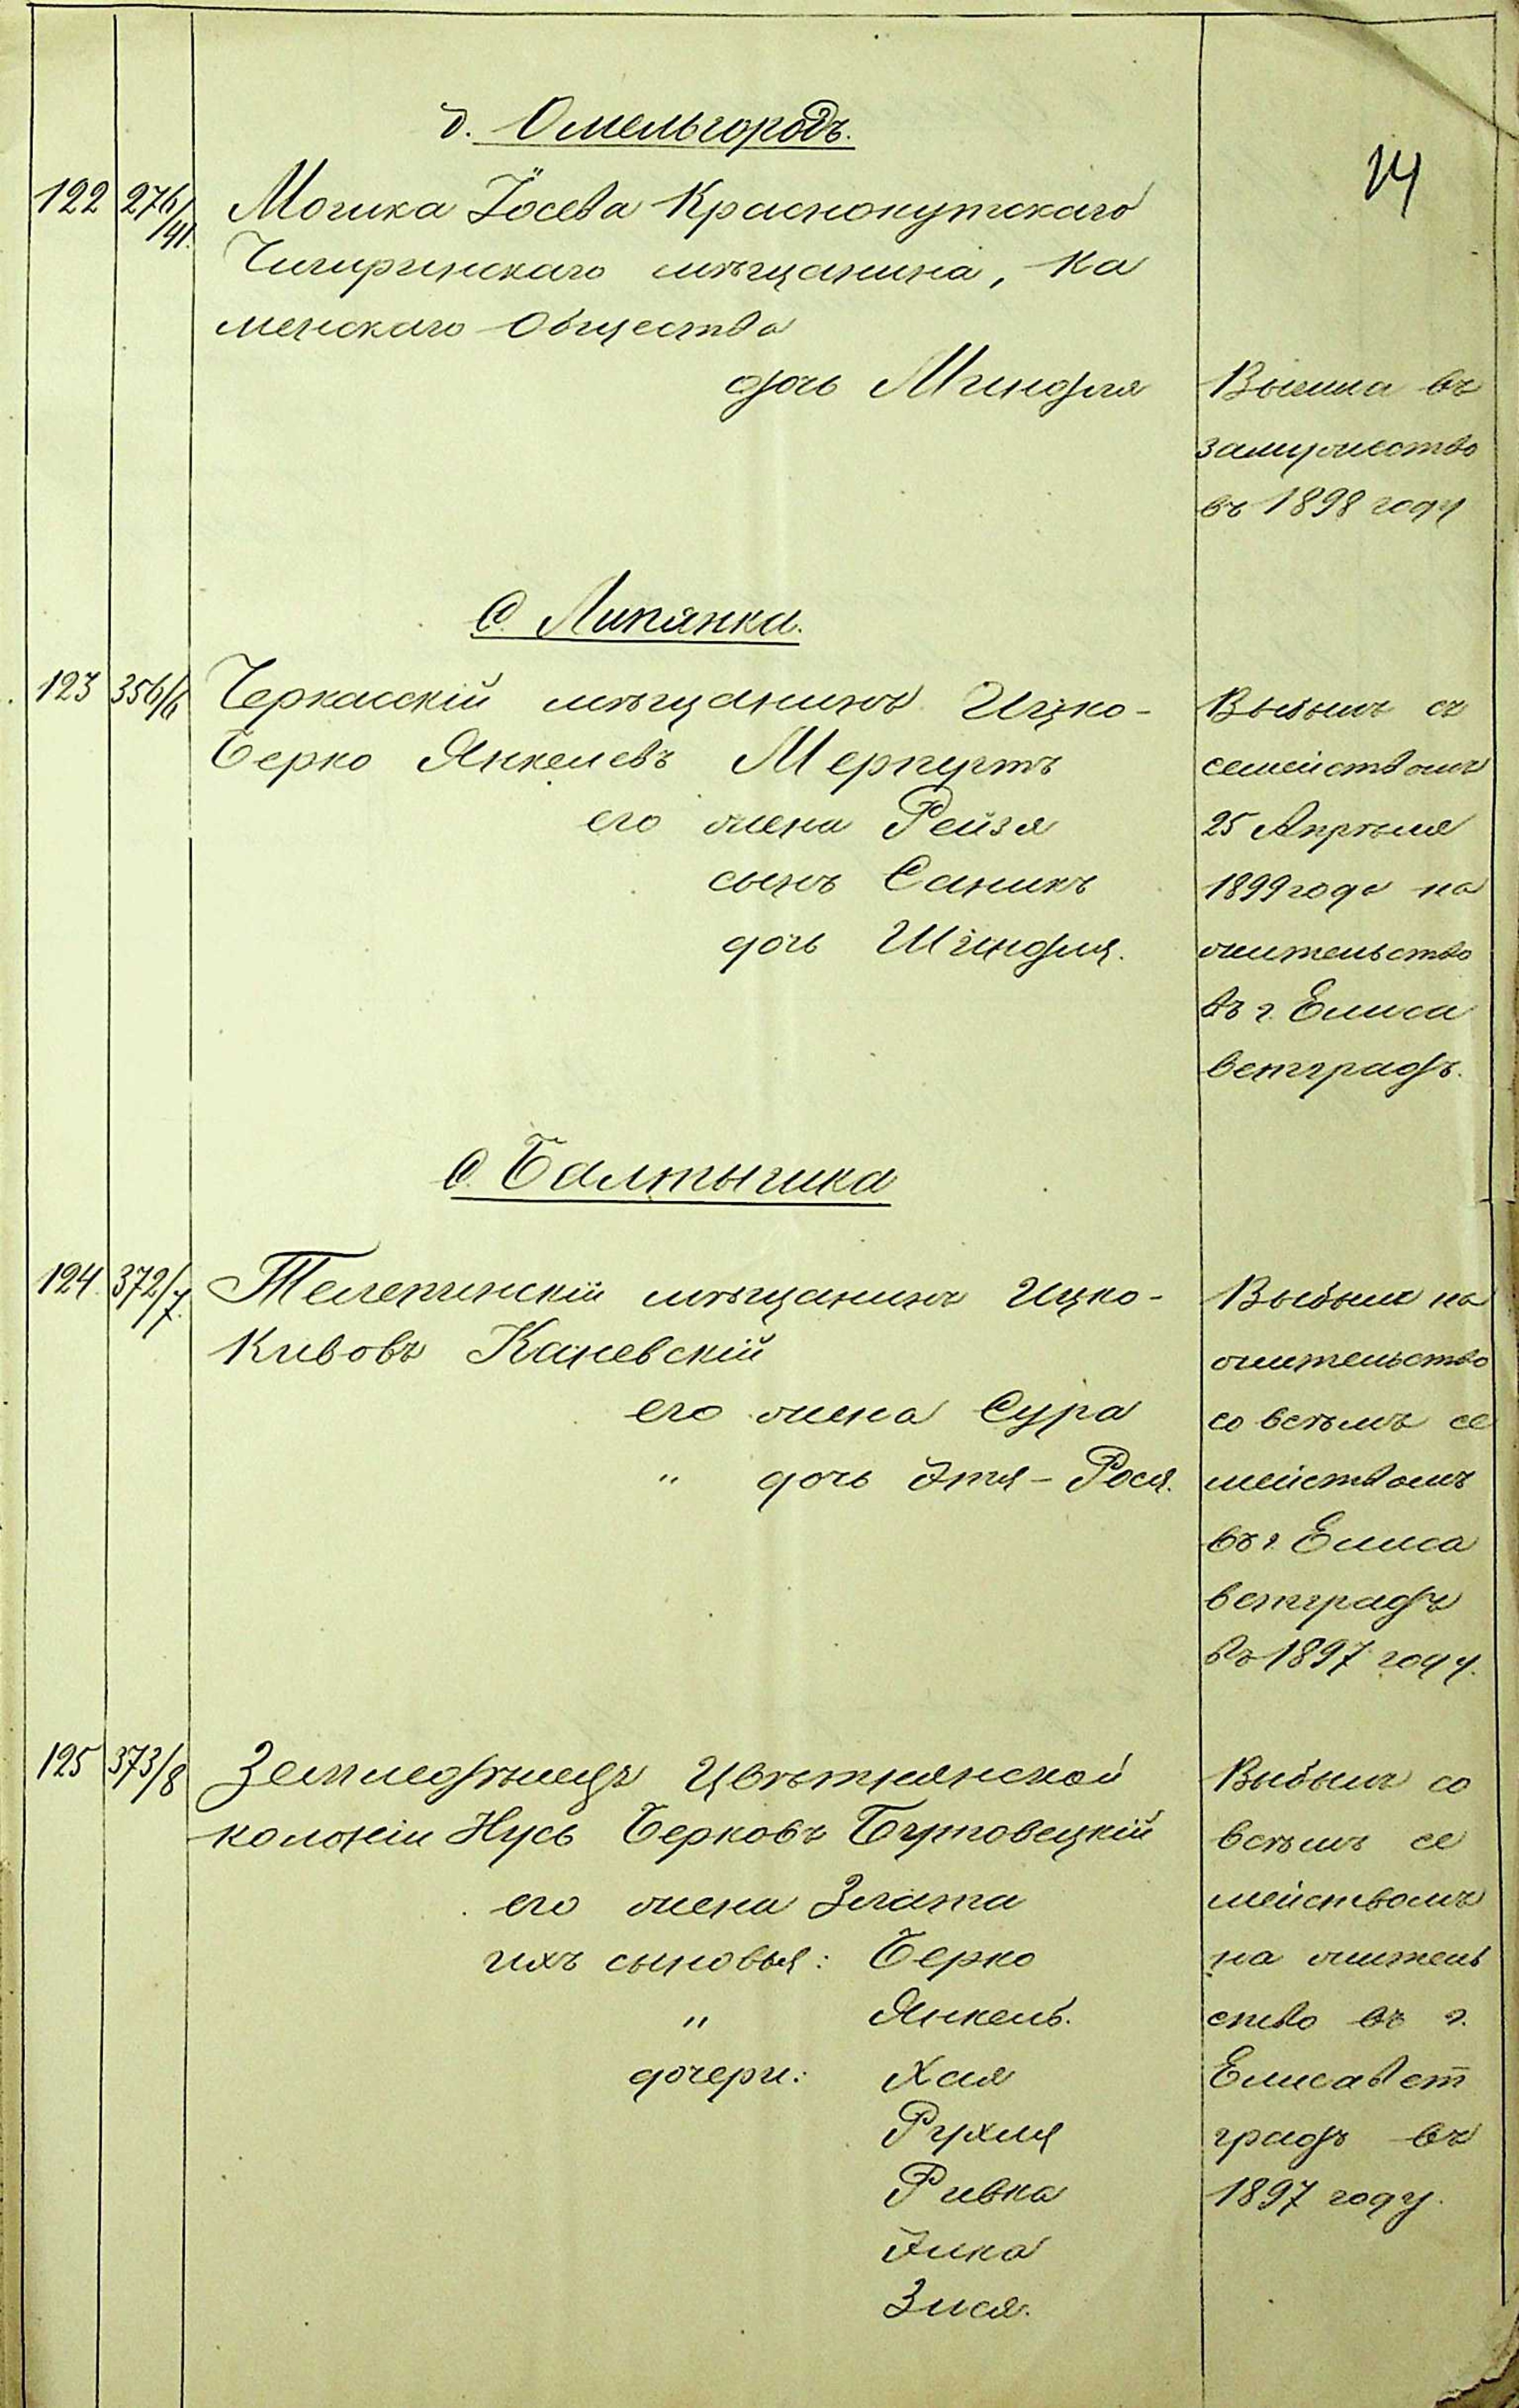 14
д. Омельгородъ.
122 276/41. Мошка Іосева Краснокутскаго
Чигиринскаго мѣщанина, Ка
менскаго Общества
дочь Миндля
Вышла въ
замужество
въ 1898 году
С. Липянка.
123 356/6 Черкасскій мѣщанинъ Ицко-
Берко Янкелевъ Меркутъ
его жена Рейзя
сынъ Саникъ
дочь Шиндля.
Выбылъ съ
семействомъ
25 Апрѣля
1899 года на
жительство
въ г. Елиса
ветградъ.
С. Балтышка
124 372/7. Телепинскій мѣщанинъ Ицко-
Кивовъ Каневскій
его жена Сура
" дочь Этя-Рося.
Выбылъ на
жительство
со всѣмъ се
мействомъ
въ г. Елиса
ветградъ
въ 1897 году.
125 373/8 Земледѣлецъ Цвѣтнянской
колоніи Нусь Берковъ Буртовецкій
его жена Злата
ихъ сыновья: Берко
" Янкель.
дочери: Хая
Рухля
Ривка
Элка
Зися.
Выбылъ со
всѣмъ се
мействомъ
на житель
ство въ г.
Елисавет
градъ въ
1897 году.